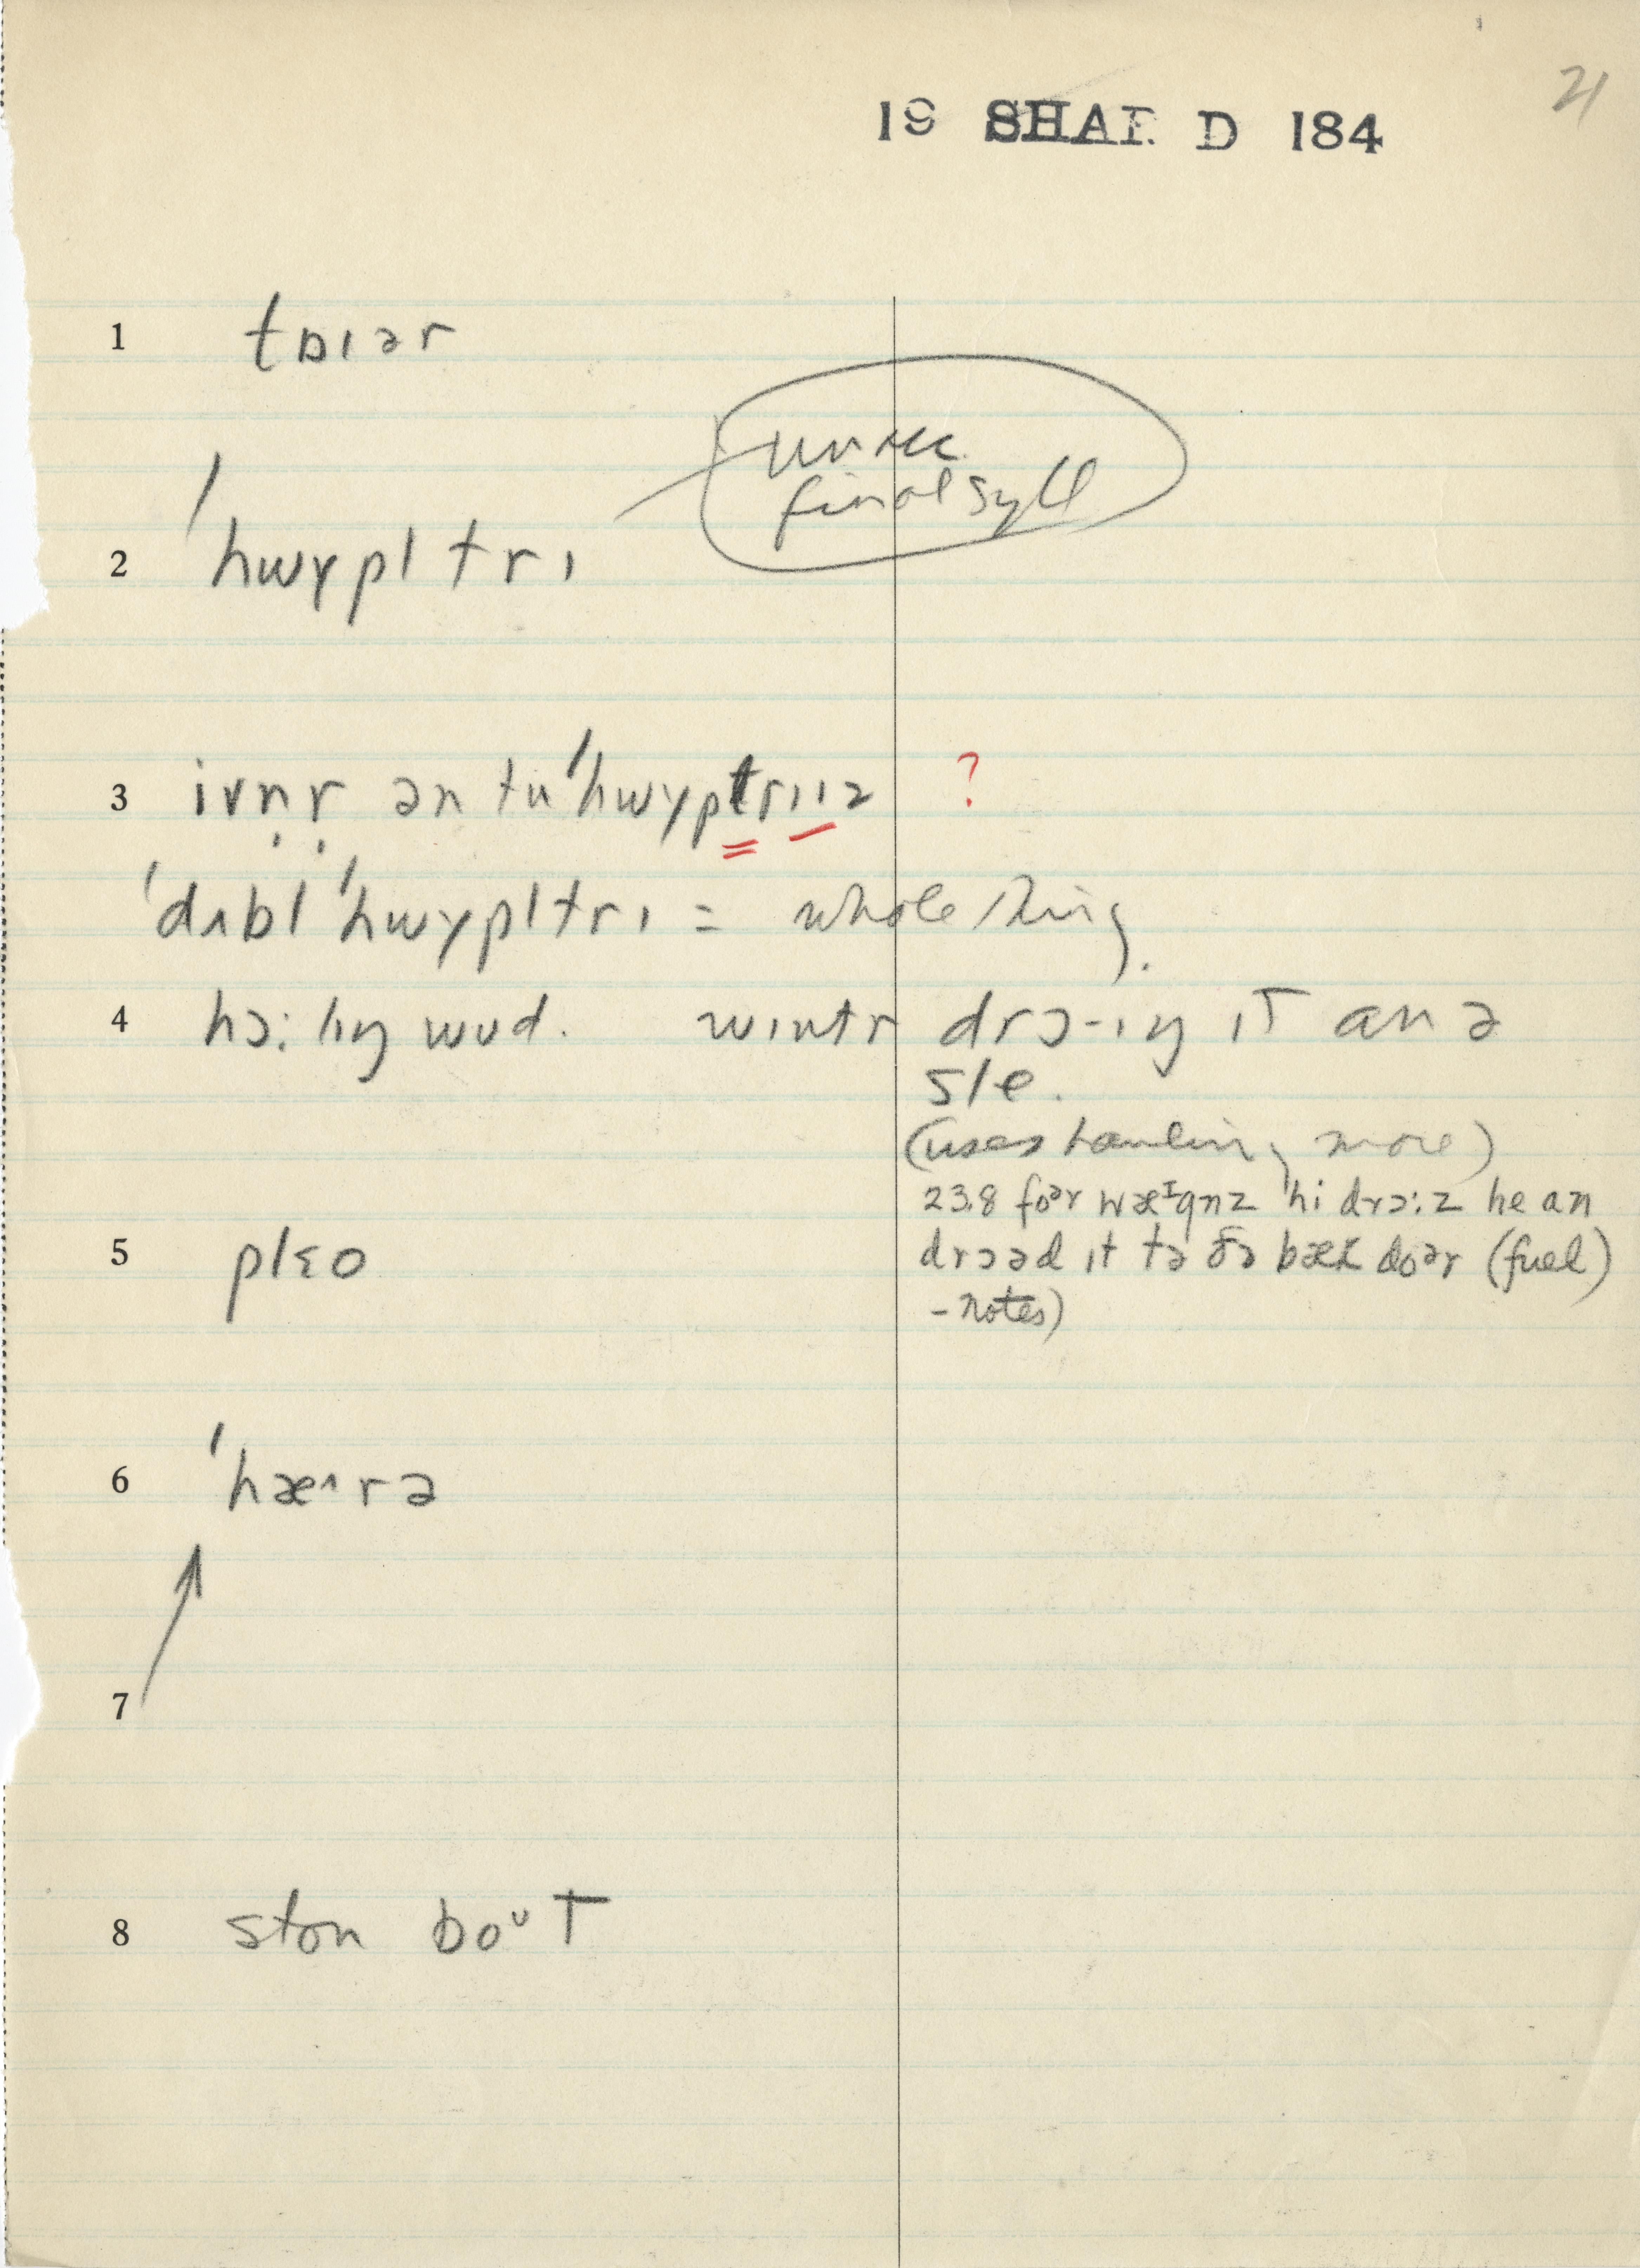 21
19 SHAR D 184
1 tɒɪər
unrec.
final syll
2 ˈhwɣpl trɪ
3 ivn̩r̩ ən tuˈhwɣptrɪɪz ?
ˈdʌblˈhwɣpltrɪ = whole thing.
4 hɔ:lɪŋ wud. wɪntr drɔ-ɪŋ ɪT an ə
sle.
(uses hauling more)
23.8 foᵊr wæᴵgnz hi drɔ:z he an
drɔəd ɪt tə ðə bæk doᵊr (fuel)
- notes)
5 plɛo
6 ˈhæ^rə
7
8 ston boᶸT